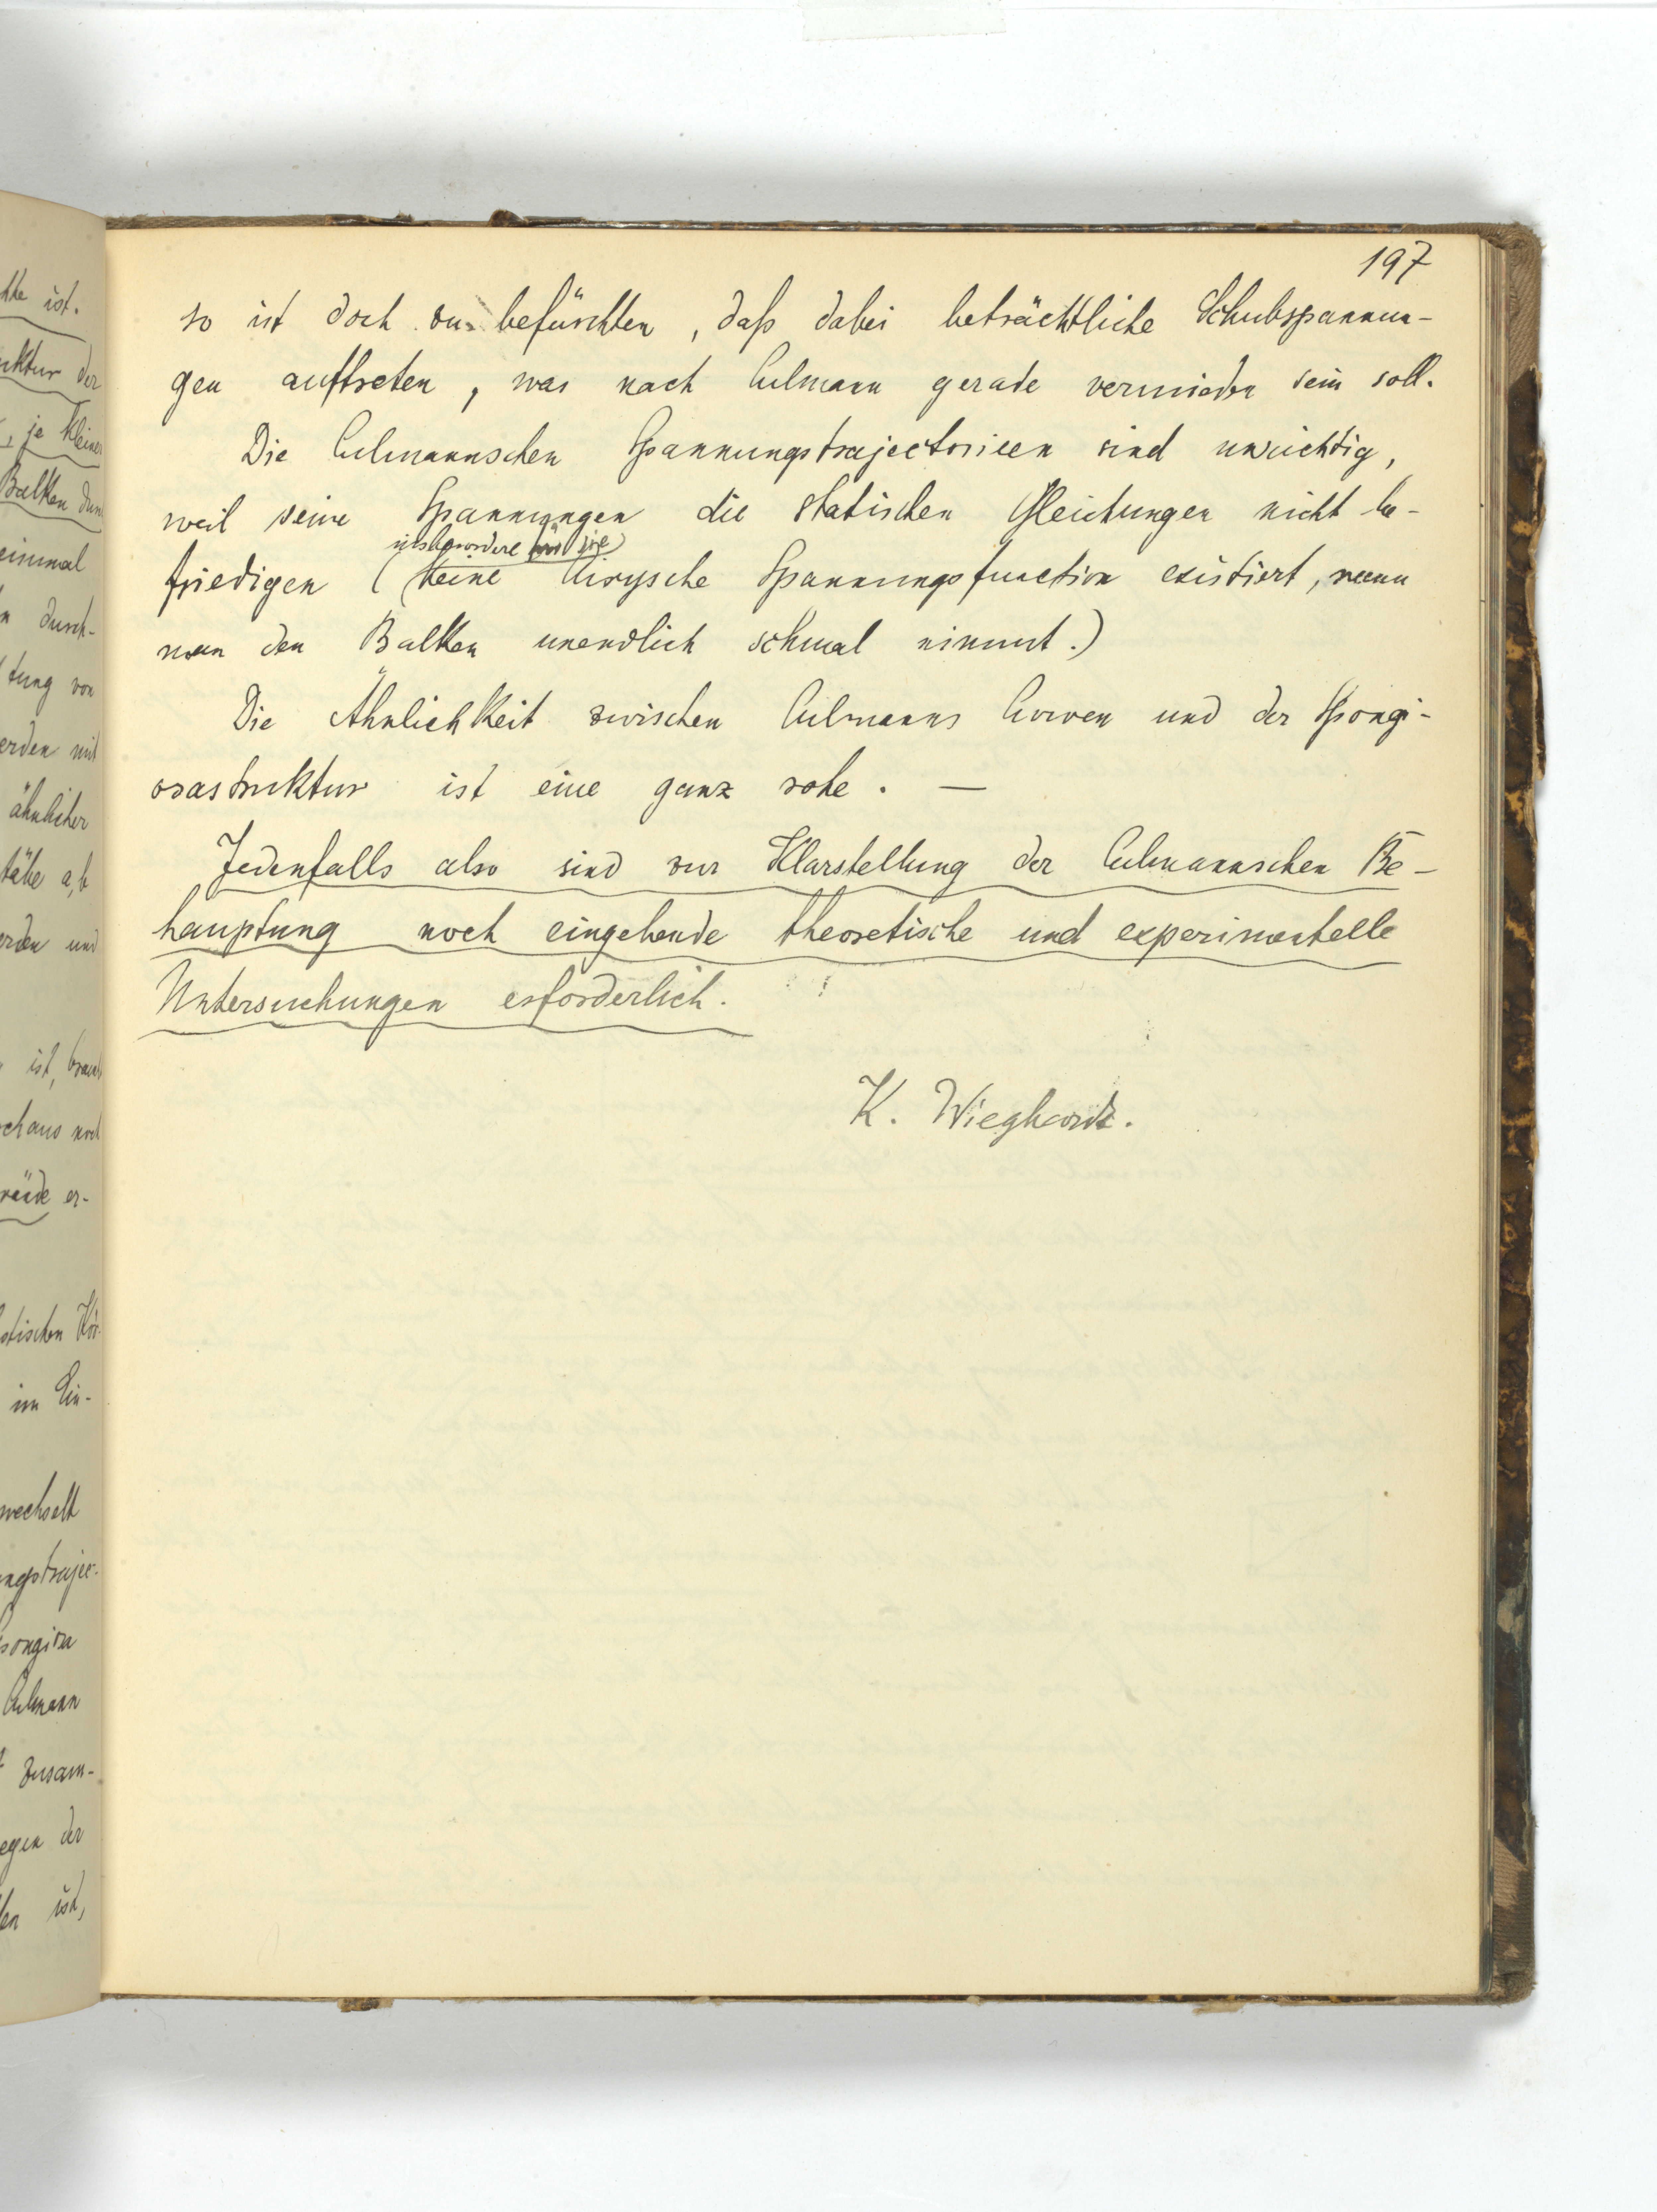 197
so ist doch zu befürchten, daß dabei beträchtliche Schubspannun-
gen auftreten, was nach Culmann gerade vermieden sein soll.
Die Culmannschen Spannungstrajectorieen sind unrichtig,
weil seine Spannungen die statischen Gleichungen nicht be-
insbesondere für sie
friedigen (keine Airysche Spannungsfunction existiert, wenn
man den Balken unendlich schmal nimmt.)
Die Ähnlichkeit zwischen Culmanns Curven und der Spongi-
osastruktur ist eine ganz rohe. —
Jedenfalls also sind zur Klarstellung der Culmannschen Be-
hauptung noch eingehende theoretische und experimentelle
Untersuchungen erforderlich.
K. Wieghardt.
tte ist.
uktur der
, je kleiner
Balken
einmal
n durch-
tung von
erden mit
ähnlicher
täbe a, b
erden und
ist,
rchaus noch
er-
stischen Kör-
im Ein-
wechselt
ungstrajec-
Spongiosa
Culmann
zusam-
egen der
en ist,